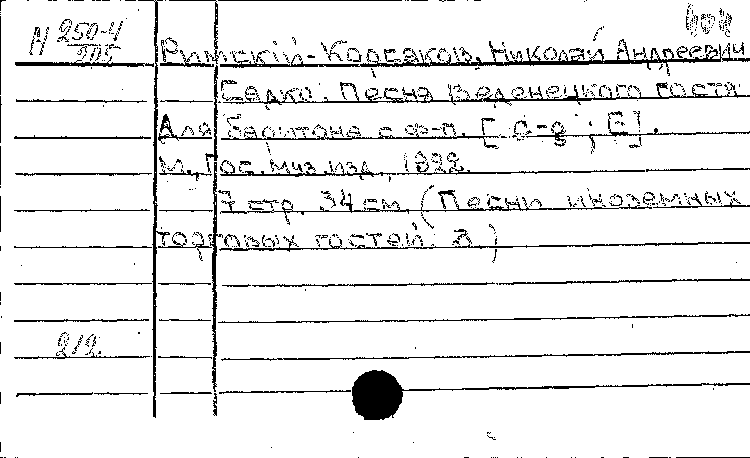 N 250-4
Римскій-Корсаков, Николай Андреевич
Садко. Песня Веденецкого гостя.
Для баритона с ф-п. [ c-g ; E ].
М., Гос. муз. изд., 1922.
7 стр. 34 см. (Песни иноземных
торговых гостей. 3.)
212.